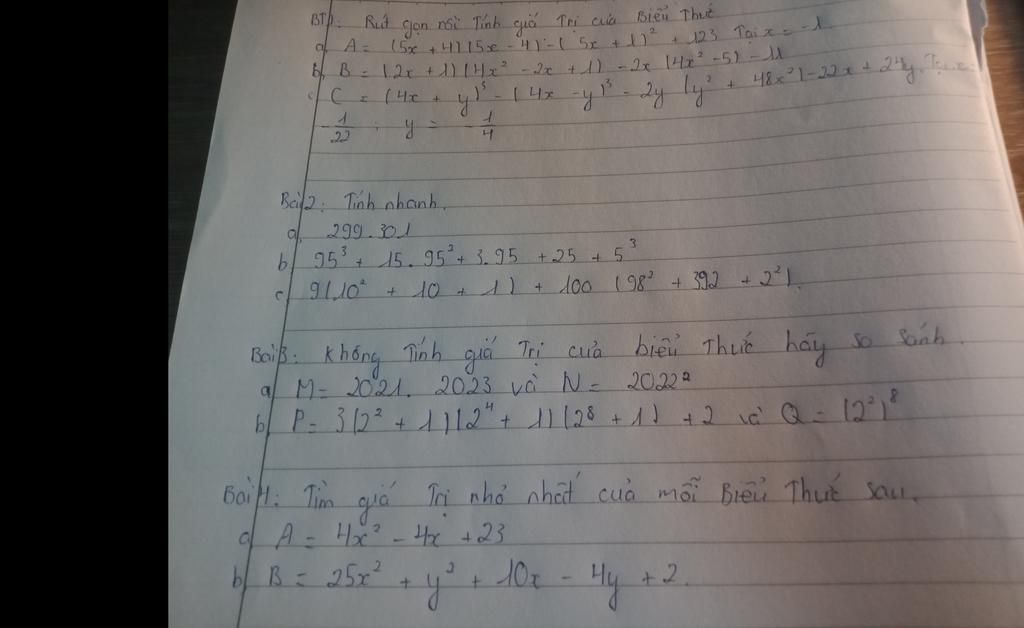 BT1: Rút gọn rồi Tính giá Trị của Biểu Thức
a, A = (5x + 4)(5x - 4) - (5x + 1)² + 123 Tại x = -1
b, B = (2x + 1)(4x² - 2x + 1) - 2x (4x² - 5) - 11
c, C = (4x + y)³ - (4x - y)³ - 2y (y² + 48x²) - 22x + 24y. Tại x =
- 1/22 ; y = - 1/4
Bài 2: Tính nhanh.
a, 299.301
b, 95³ + 15. 95² + 3.95 + 25 + 5³
c, 9(10² + 10 + 1) + 100 (98² + 392 + 2²).
Bài 3: không Tính giá Trị của biểu Thức hãy so sánh.
a, M = 2021. 2023 và N = 2022²
b, P = 3(2² + 1)(2⁴ + 1)(28 + 1) + 2 và Q = (2²)⁸
Bài 4: Tìm giá Trị nhỏ nhất của mỗi Biểu Thức sau.
a, A = 4x² - 4x + 23
b, B = 25x² + y² + 10x - 4y + 2.